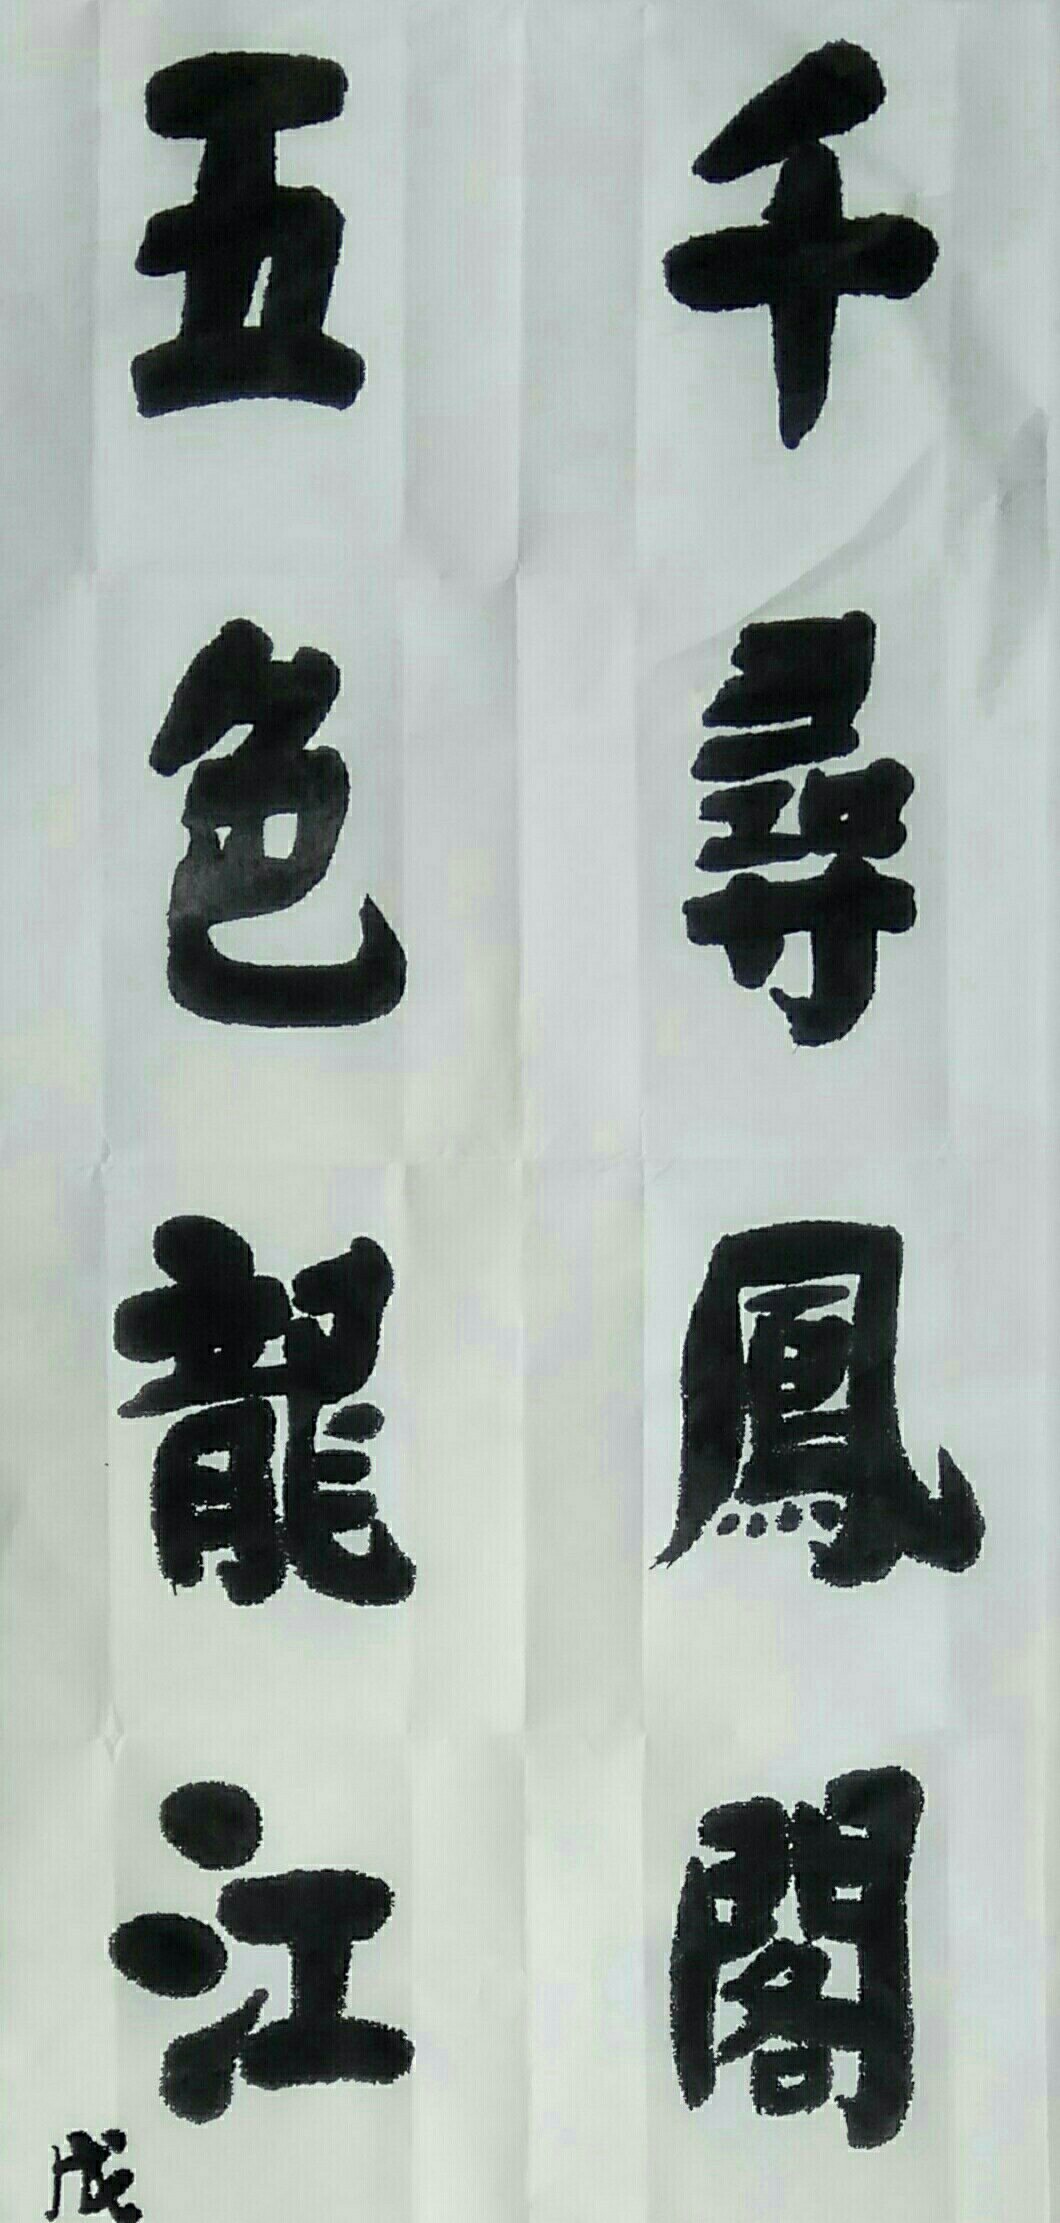 千尋鳳閣
五色龍江